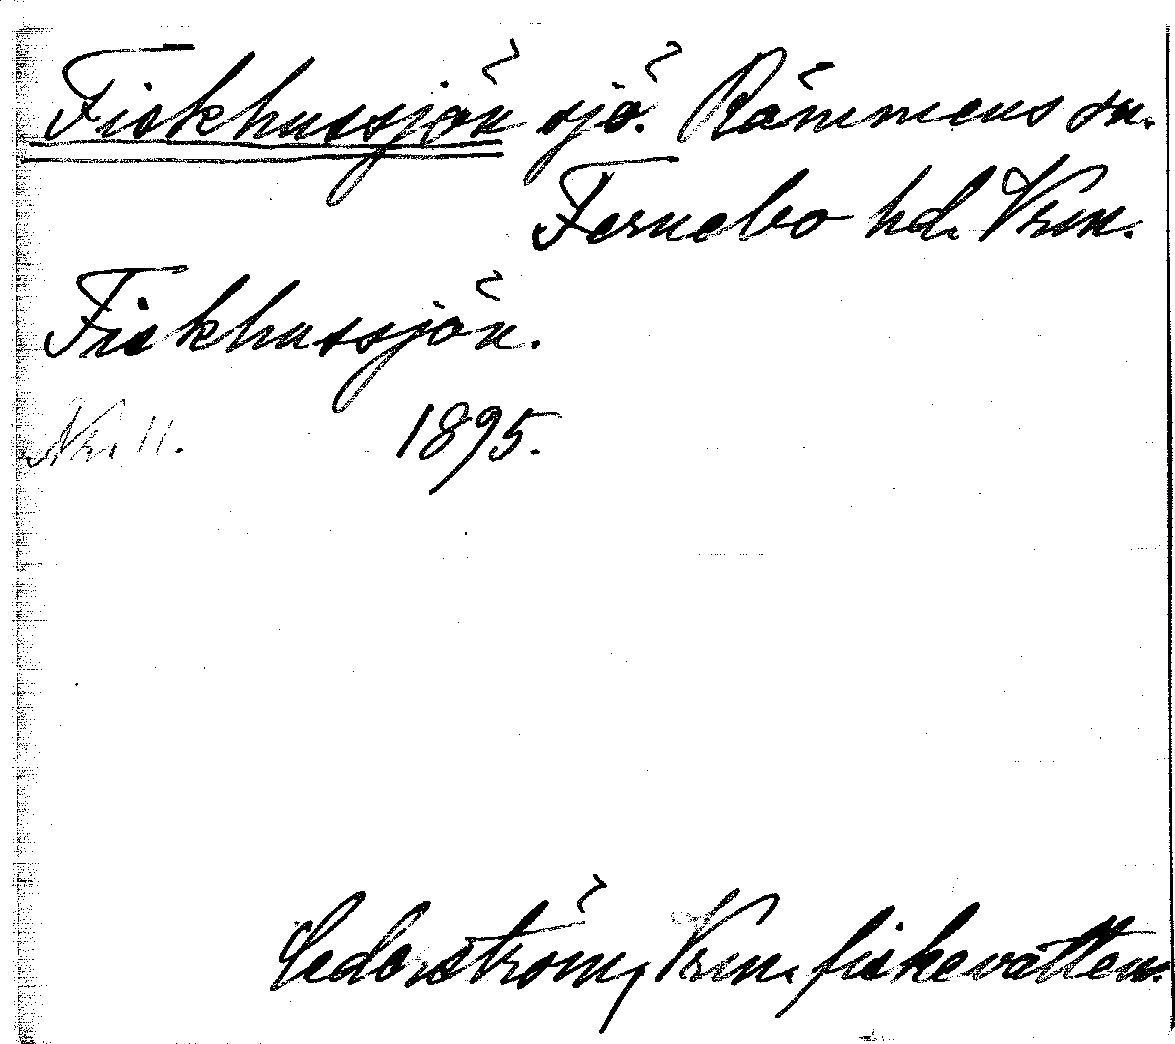 Fiskhussjön sjö. Rämmens sn.
Fernebo hd. Vrm.
Fiskhussjön.
1895.
Cederström, Vrm. fiskevatten.